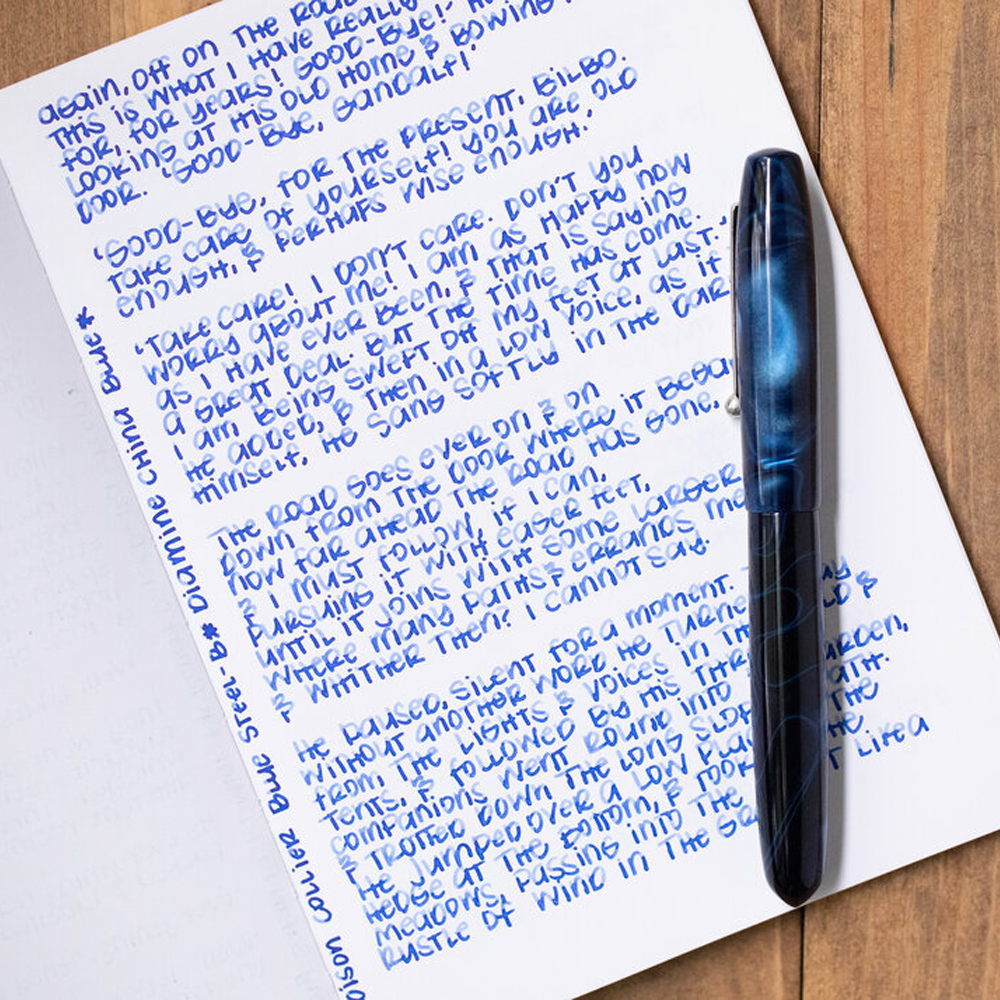 again, off on the road
This is what I have really
for, for years! Good-bye!' he
looking at his old home & bowing
door. 'Good-bye, Gandalf!'
'Good-bye, for the present, Bilbo.
Take care of yourself! You are old
enough, & perhaps wise enough.'
'Take care! I don't care. Don't you
worry about me! I am as happy now
as I have ever been, & that is saying
a great deal. But the time has come.
I am being swept off my feet at last.'
he added, & then in a low voice, as if
himself, he sang softly in the dar
The road goes ever on & on
down from the door where it bega
now far ahead the road has gone,
& I must follow, if I can,
pursuing it with eager feet,
until it joins with some larger
where many paths & errands me
& whither then? I cannot say.
He paused, silent for a moment. T ay
without another word he turne LD &
from the lights & voices in th
tents, & followed by his thr arden,
companions went round into ath.
& trotted down the long slop the
He jumped over a low pla he
hedge at the bottom, & took the
meadows, passing into the T like a
rustle of wind in the gr
oison Collier Blue Steel-B* Diamine China Blue*